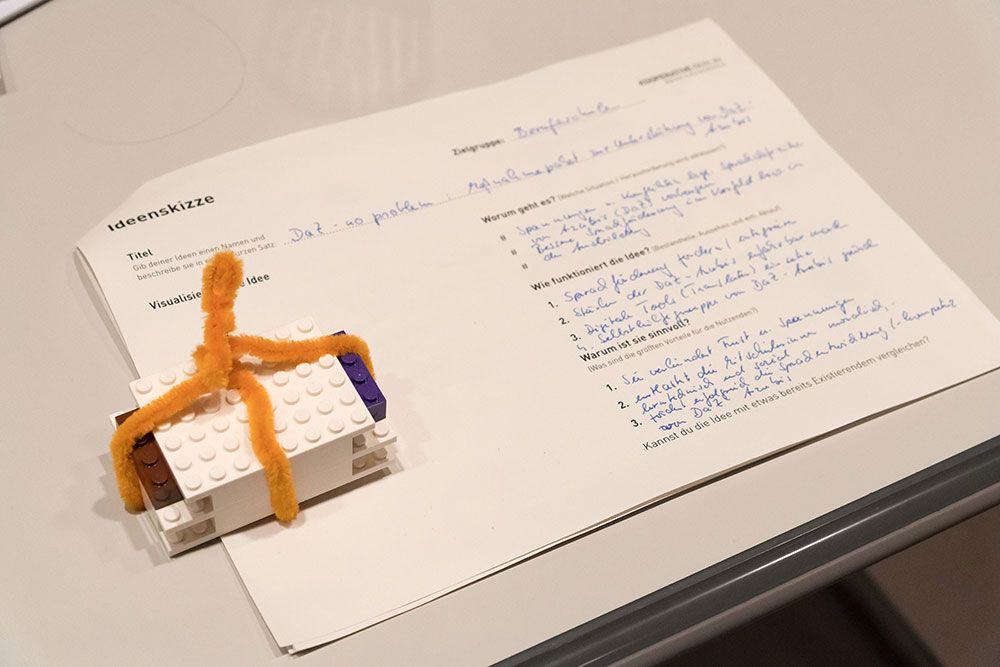 KOOPERATIVE BERLIN
Ideenskizze
Zielgruppe: Berufsschule
Titel
Gib deiner Ideen einen Namen und
beschreibe sie in kurzen Satz:
DaZ - no problem : Aufnahmepaket zur Unterstützung von DaZ-
Azubis
Visualisie Idee
Worum geht es? (Welche Situation / Herausforderung wird adressiert?)
Spannungen + Konflikte bzgl. Sprachdefizite
von Azubis (DaZ) vorbeugen
Bessere Sprachförderung im Vorfeld bzw in
der Ausbildung
Wie funktioniert die Idee? (Bestandteile, Aussehen und evtl. Ablauf)
1. Sprachförderung fordern / integrieren
2. Stärken der DaZ-Azubis erfahrbar machen
3. Digitale Tools (Translater) einsetzen
4. Selbsthilfegruppe von DaZ-Azubis
Warum ist sie sinnvoll?
(Was sind die größten Vorteile für die Nutzenden?)
1. Sie verhindert Frust u. Spannungen
2. entlastet die Mitschülerinnen
und sozial
3. die Sprachentwicklung /-kompetenz
von DaZ-Azubis
Kannst du die Idee mit etwas bereits Existierendem vergleichen?